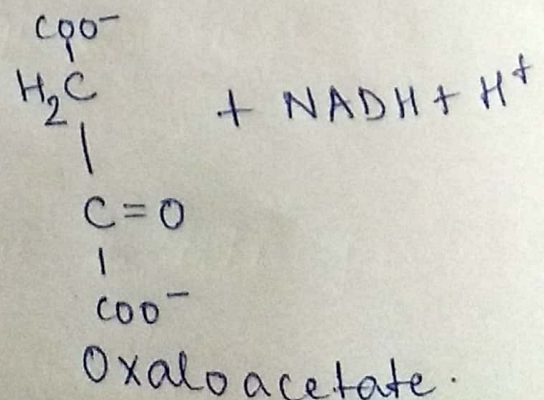 COO⁻
H₂C + NADH + H⁺
C=O
COO⁻
Oxaloacetate.